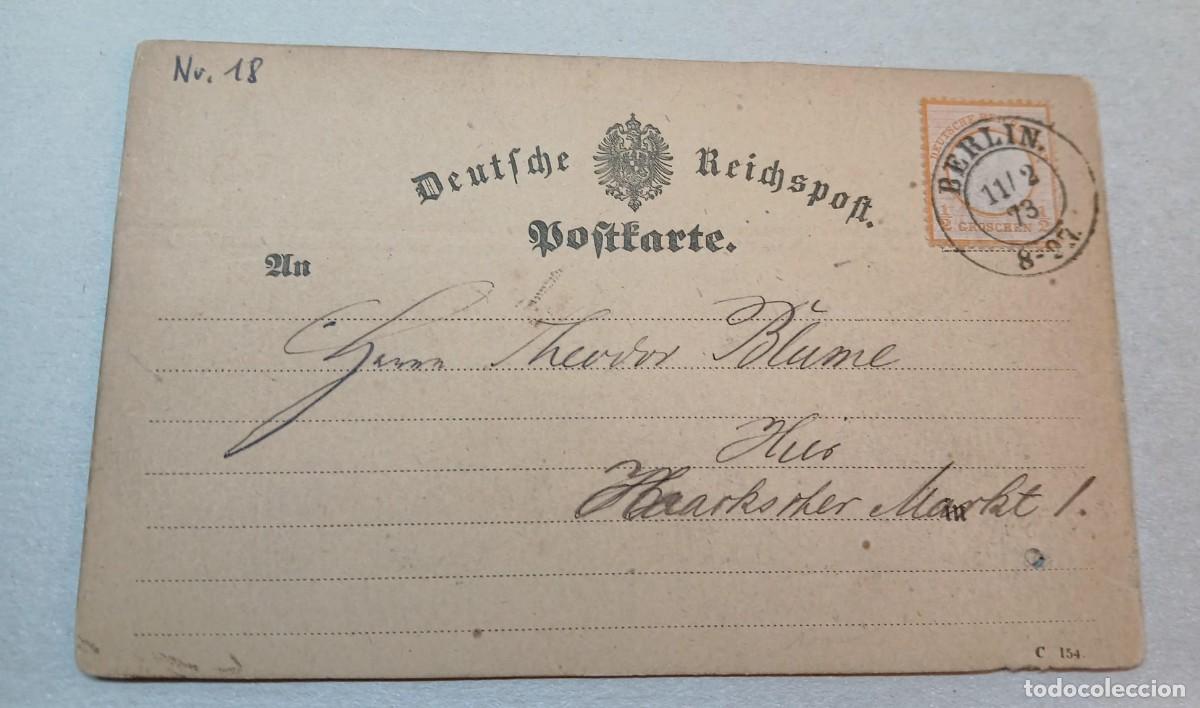 Nr. 18
Deutsche Reichspost.
Postkarte.
DEUTSCHE
1/2 GROSCHEN 1/2
BERLIN.
11/2
73
8-9V.
An
Herrn Theodor Blume
Hier
Haackscher Markt 1.
C 154.
todocoleccion